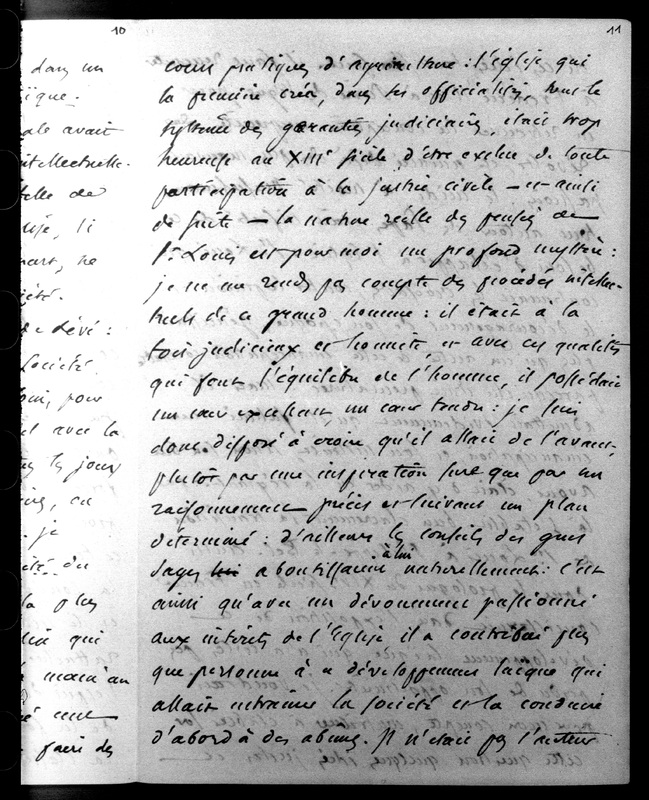 10
11
dans un
ïque.
ale avait
intellectuelle.
telle de
lise, li
part, ne
iété.
devé :
Société
pour
el avec la
les jours
je
ité du
la plus
qui
main au
cent
faire des
cours pratiques d'agriculture : l'église qui
la première créa, dans ses officialités, tout le
système des garanties judiciaires, était trop
heureuse au XIIIe siècle d'être exclue de toute
participation à la justice civile — et ainsi
de suite — la nature réelle des pensées de
St Louis est pour moi un profond mystère :
je ne me rends pas compte des procédés intellec-
tuels de ce grand homme : il était à la
fois judicieux et honnête, et avec ces qualités
qui font l'équilibre de l'homme, il possédait
un cœur excellent, un cœur tendre : je suis
donc disposé à croire qu'il allait de l'avant,
plutôt par une inspiration sûre que par un
raisonnement précis et suivant un plan
déterminé : d'ailleurs les conseils des gens
sages lui aboutissaient à lui naturellement : c'est
ainsi qu'avec un dévouement passionné
aux intérêts de l'Eglise il a contribué plus
que personne à ce développement laïque qui
allait entraîner la société et la conduire
d'abord à des abîmes. Il n'était pas l'auteur